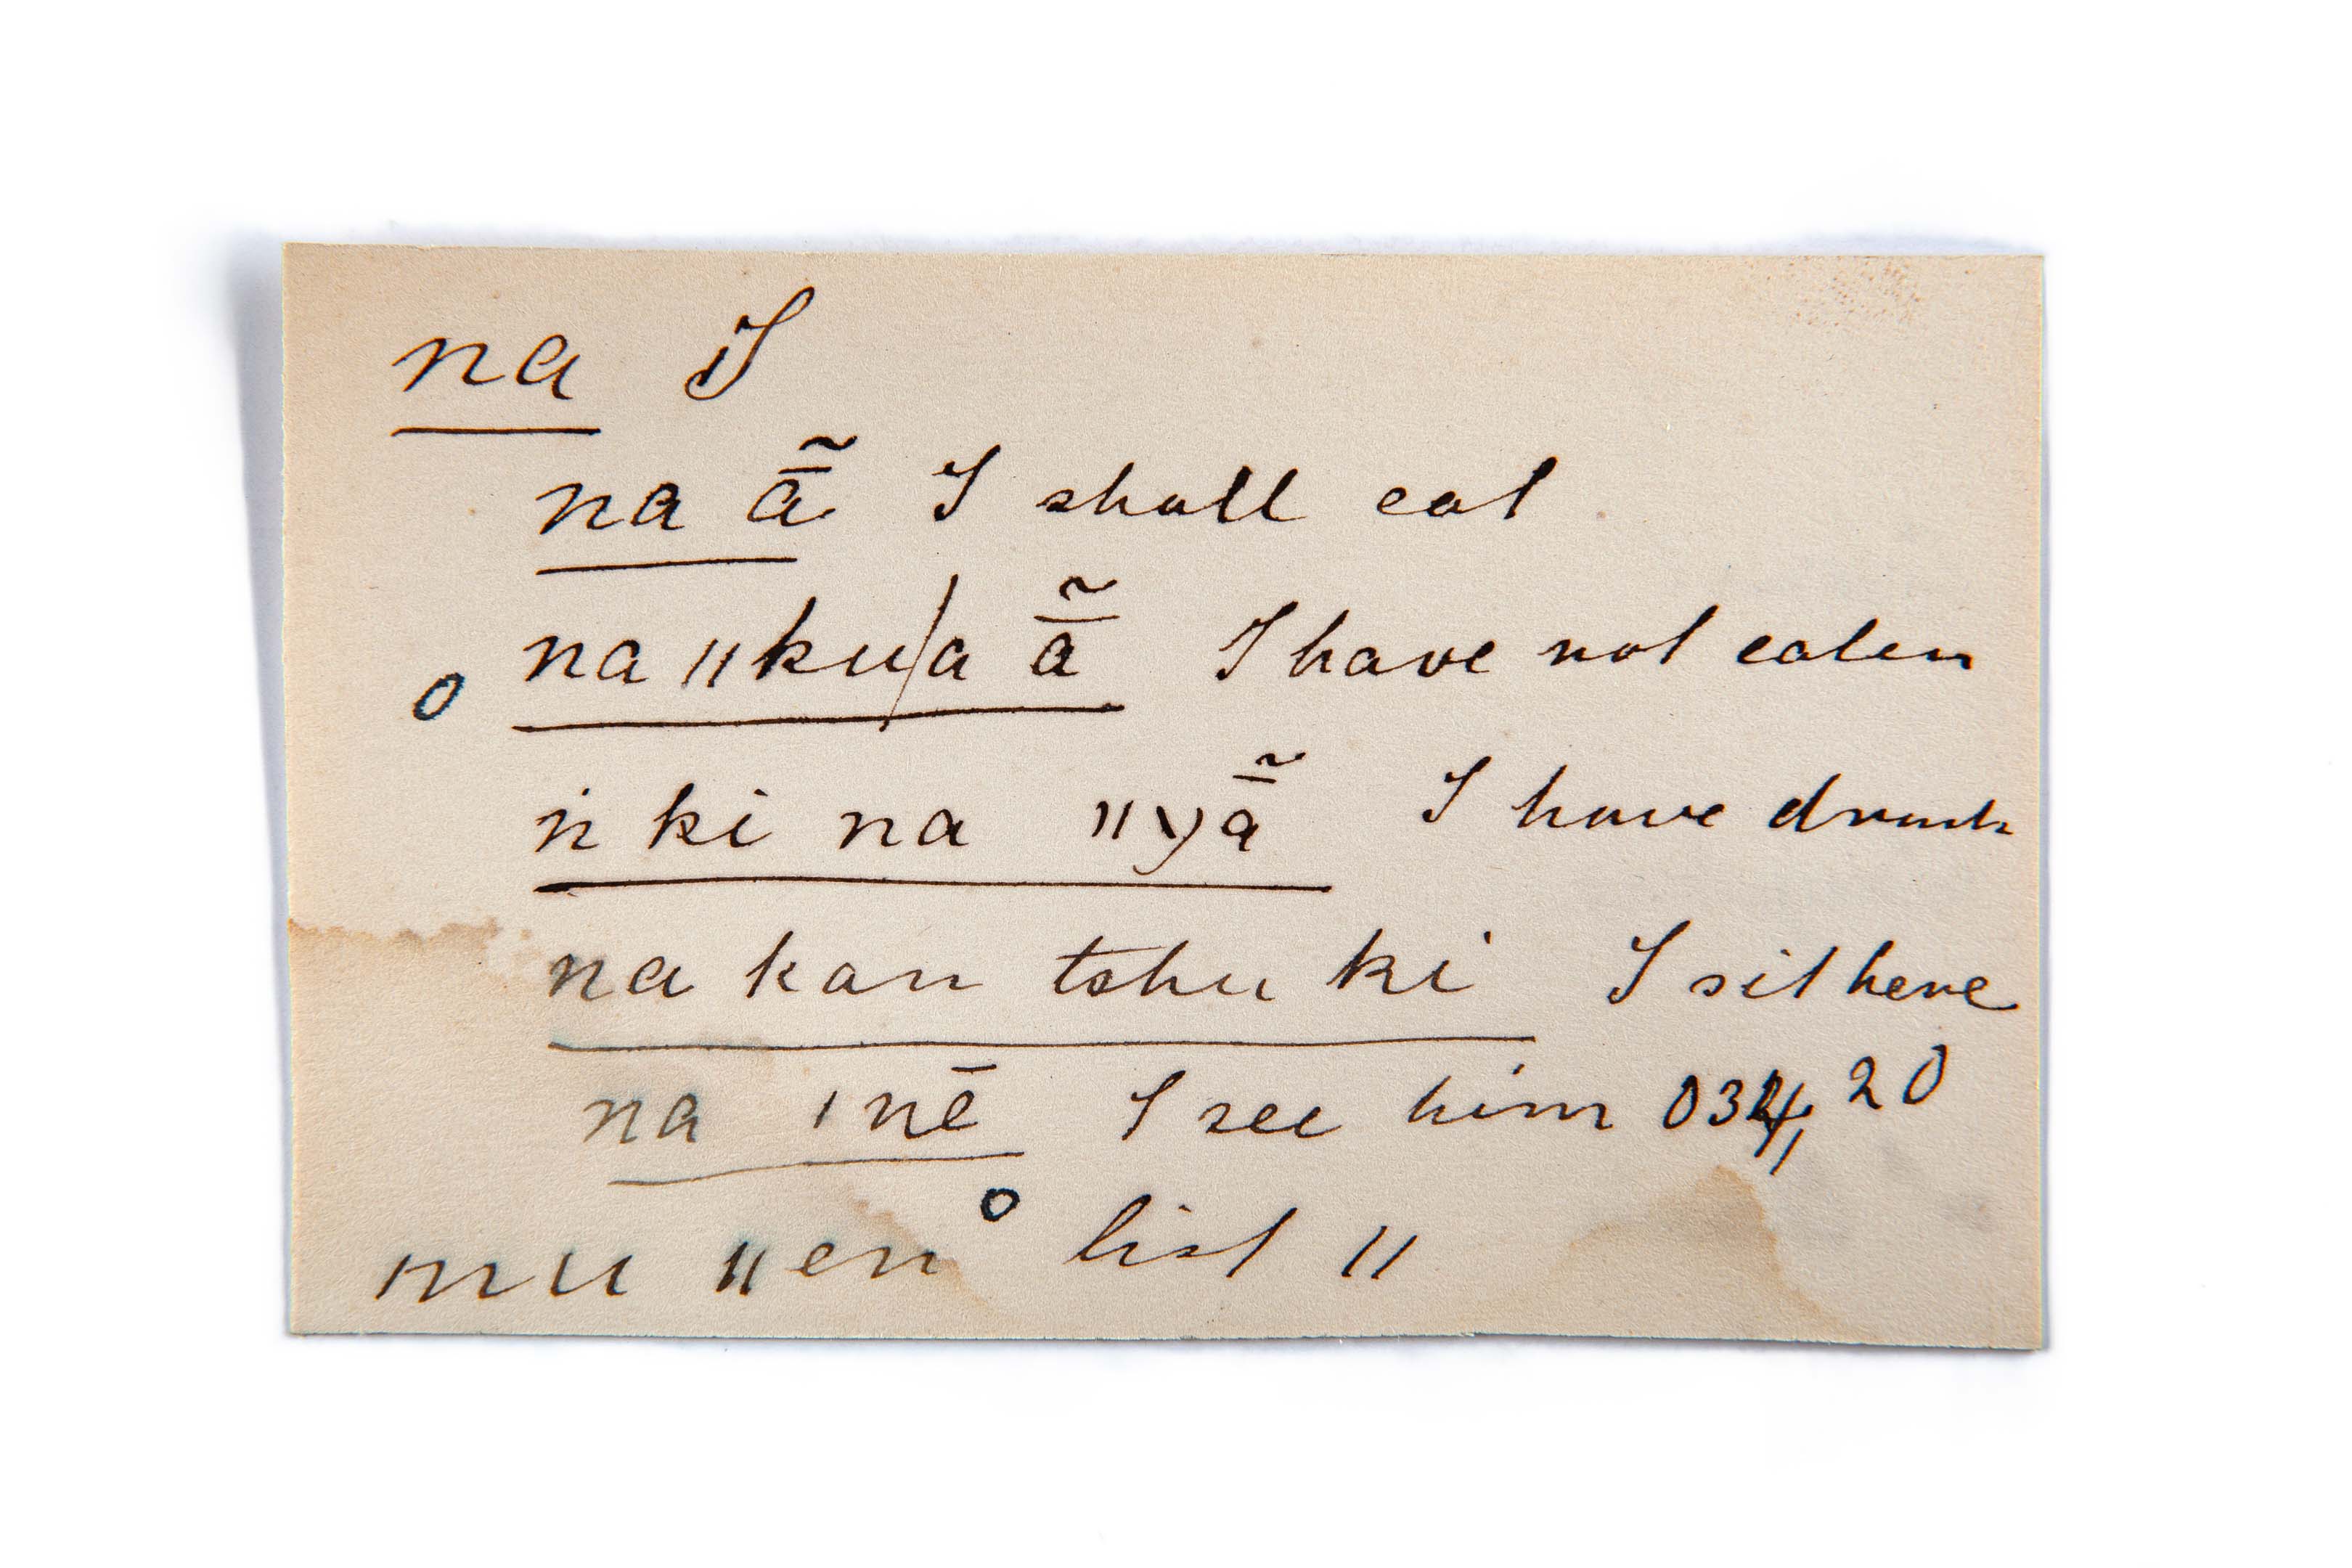 na I
na ā̃ I shall eat
o na ǁku/a ā̃ I have not eaten
ṅ ki na ǁyā̃ I have drunk
na kan tshu ki I sit here
na ǀnē I see him 034, 20
mu ǁen° list ǁ